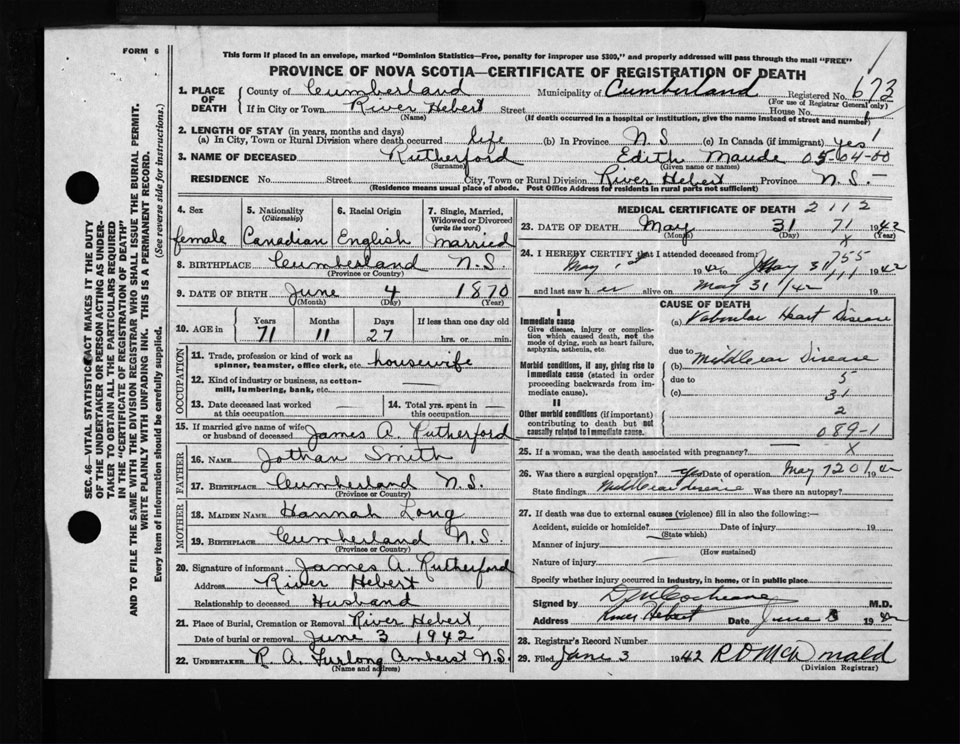 FORM 6
This form if placed in an envelope, marked "Dominion Statistics—Free, penalty for improper use $300," and properly addressed will pass through the mail "FREE"
PROVINCE OF NOVA SCOTIA—CERTIFICATE OF REGISTRATION OF DEATH
SEC. 46—VITAL STATISTICS ACT MAKES IT THE DUTY
OF THE UNDERTAKER OR PERSON ACTING AS UNDER-
TAKER TO OBTAIN ALL THE PARTICULARS REQUIRED
IN THE "CERTIFICATE OF REGISTRATION OF DEATH"
AND TO FILE THE SAME WITH THE DIVISION REGISTRAR WHO SHALL ISSUE THE BURIAL PERMIT.
WRITE PLAINLY WITH UNFADING INK. THIS IS A PERMANENT RECORD.
Every item of information should be carefully supplied. (See reverse side for instructions.)
1. PLACE OF DEATH County of Cumberland Municipality of Cumberland Registered No. 673
(For use of Registrar General only)
If in City or Town River Hebert Street House No.
(Name) (If death occurred in a hospital or institution, give the name instead of street and number)
2. LENGTH OF STAY (in years, months and days)
(a) In City, Town or Rural Division where death occurred life (b) In Province N.S (c) In Canada (if immigrant) yes 1
3. NAME OF DECEASED Rutherford Edith Maude 05-04-00
(Surname) (Given name or names)
RESIDENCE No. Street City, Town or Rural Division River Hebert Province N.S.
(Residence means usual place of abode. Post Office Address for residents in rural parts not sufficient)
4. Sex female
5. Nationality (Citizenship) Canadian
6. Racial Origin English
7. Single, Married, Widowed or Divorced (write the word) Married
8. BIRTHPLACE Cumberland N.S.
(Province or Country)
9. DATE OF BIRTH June 4 1870
(Month) (Day) (Year)
10. AGE in Years 71 Months 11 Days 27 If less than one day old hrs. or min.
OCCUPATION
11. Trade, profession or kind of work as spinner, teamster, office clerk, etc. housewife
12. Kind of industry or business, as cotton-mill, lumbering, bank, etc.
13. Date deceased last worked at this occupation
14. Total yrs. spent in this occupation
15. If married give name of wife or husband of deceased James A. Rutherford
FATHER
16. NAME Jothan Smith
17. BIRTHPLACE Cumberland N.S.
(Province or Country)
MOTHER
18. MAIDEN NAME Hannah Long
19. BIRTHPLACE Cumberland N.S.
(Province or Country)
20. Signature of informant James A. Rutherford
Address River Hebert
Relationship to deceased Husband
21. Place of Burial, Cremation or Removal River Hebert
Date of burial or removal June 3 1942
22. UNDERTAKER R. A. Furlong Amherst N.S.
(Name and address)
MEDICAL CERTIFICATE OF DEATH 2112
23. DATE OF DEATH May 31 71 1942
(Month) (Day) X (Year)
24. I HEREBY CERTIFY that I attended deceased from 755
May 1942 to May 31 1942
and last saw her alive on May 31/42 19
CAUSE OF DEATH
I
Immediate cause
Give disease, injury or complication which caused death, not the mode of dying, such as heart failure, asphyxia, asthenia, etc.
(a) Valvular Heart Disease
due to
Morbid conditions, if any, giving rise to immediate cause (stated in order proceeding backwards from immediate cause).
(b) Middle ear Disease
due to 5
(c) 31
II
2
Other morbid conditions (if important) contributing to death but not causally related to immediate cause.
089-1
25. If a woman, was the death associated with pregnancy? X
26. Was there a surgical operation? yes Date of operation May 1942
State findings Middle ear disease Was there an autopsy?
27. If death was due to external causes (violence) fill in also the following:—
Accident, suicide or homicide? Date of injury 19
(State which)
Manner of injury
(How sustained)
Nature of injury
Specify whether injury occurred in industry, in home, or in public place
Signed by Cochrane M.D.
Address River Hebert Date June 3 1942
28. Registrar's Record Number
29. Filed June 3 1942 R D McDonald
(Division Registrar)